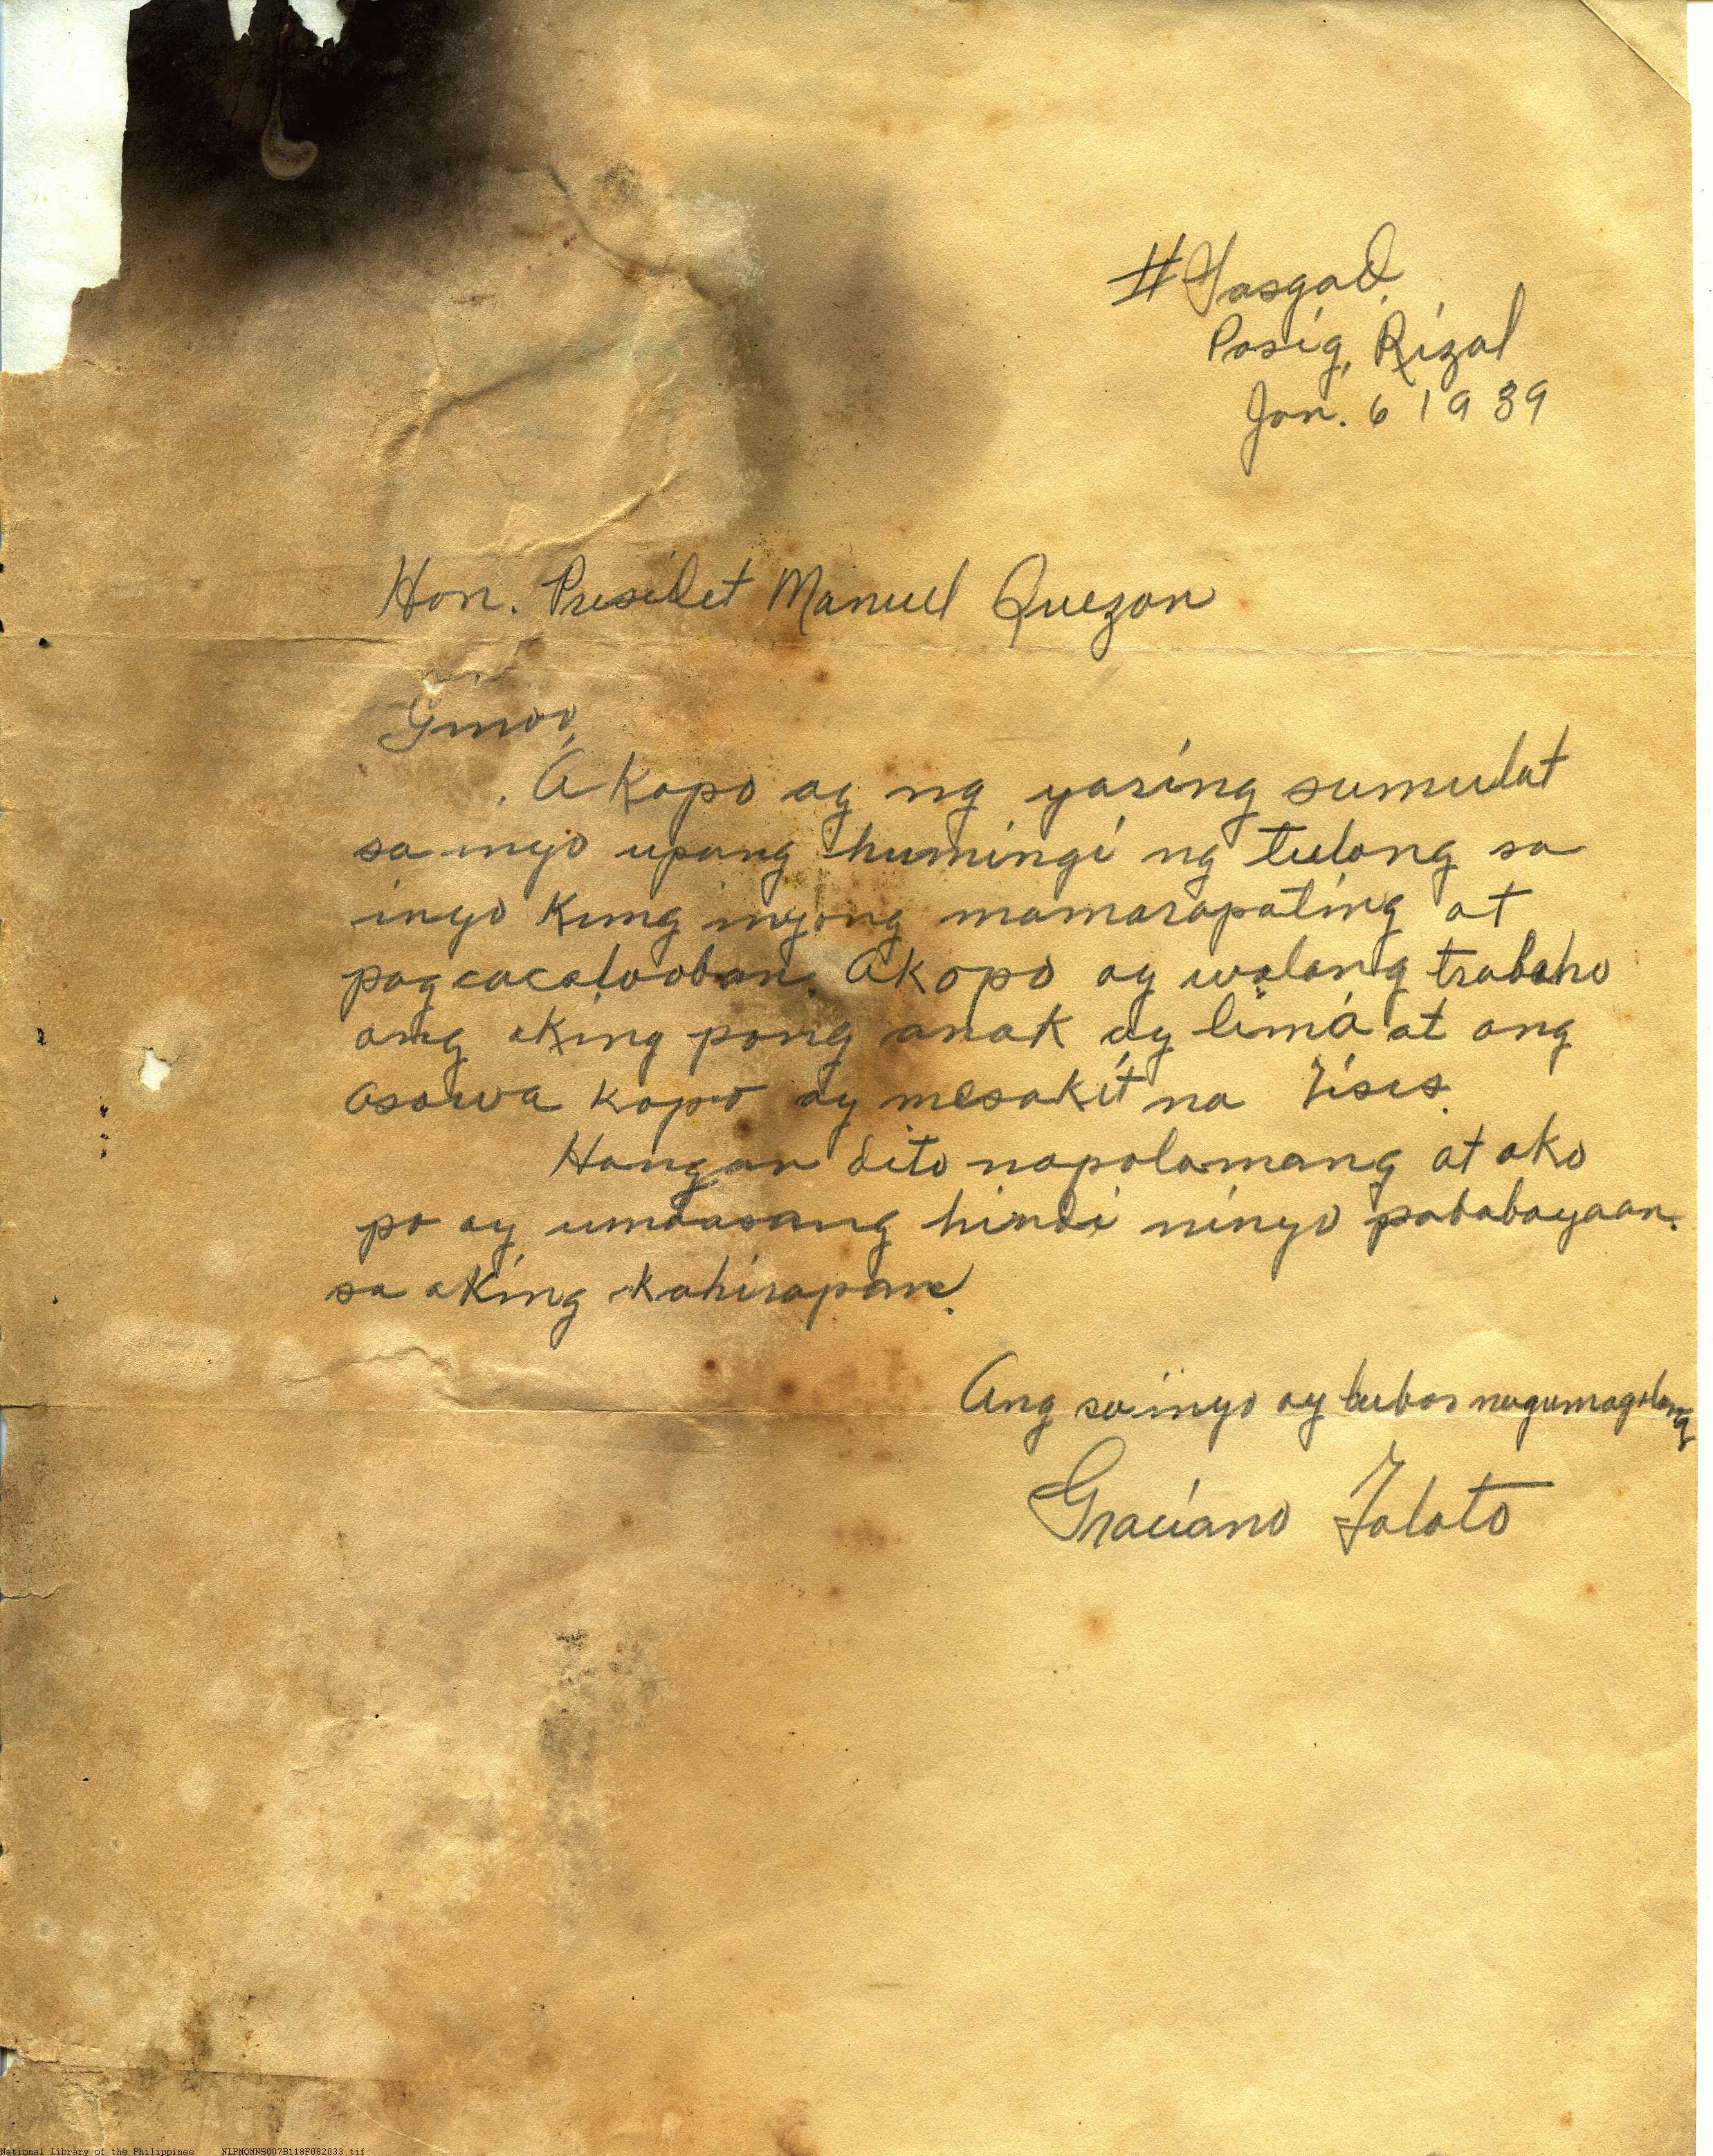 # Sasgad
Pasig, Rizal
Jan. 6 1939
Hon. Presidet Manuel Quezon
Ginoo,
Akopo ay ng yaring sumulat
sa inyo upang humingi ng tulong sa
inyo kung inyong mamarapating at
pagcacalooban. Akopo ay walang trabaho
ang aking pong anak ay limá at ang
asawa kopo ay mesakit na tisis.
Hangan dito napolamang at ako
po ay umaasang hindi ninyo pababayaan.
sa aking kahirapan.
Ang sa inyo ay lubos nagumagalang
Graciano
National Library of the Philippines NLPMQMNS007B118F082033.tif